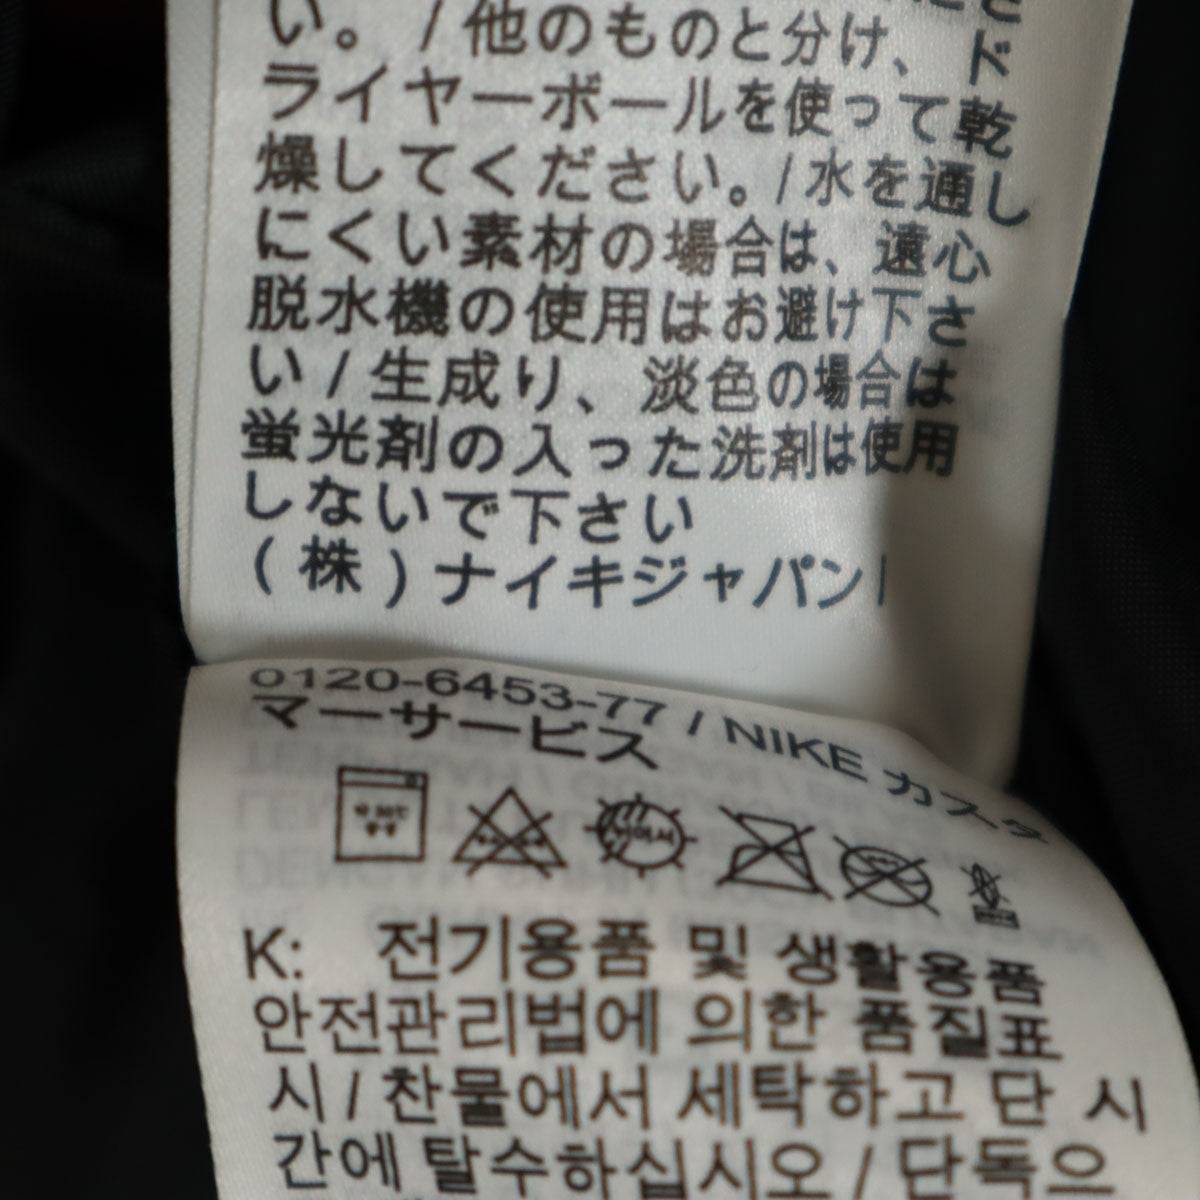 い。/他のものと分け、ド
ライヤーボールを使って乾
燥してください。/水を通し
にくい素材の場合は、遠心
脱水機の使用はお避け下さ
い/生成り、淡色の場合は
蛍光剤の入った洗剤は使用
しないで下さい
(株)ナイキジャパン
0120-6453-77 / NIKE カスタ
マーサービス
K: 전기용품 및 생활용품
안전관리법에 의한 품질표
시/찬물에서 세탁하고 단 시
간에 탈수하십시오/단독으